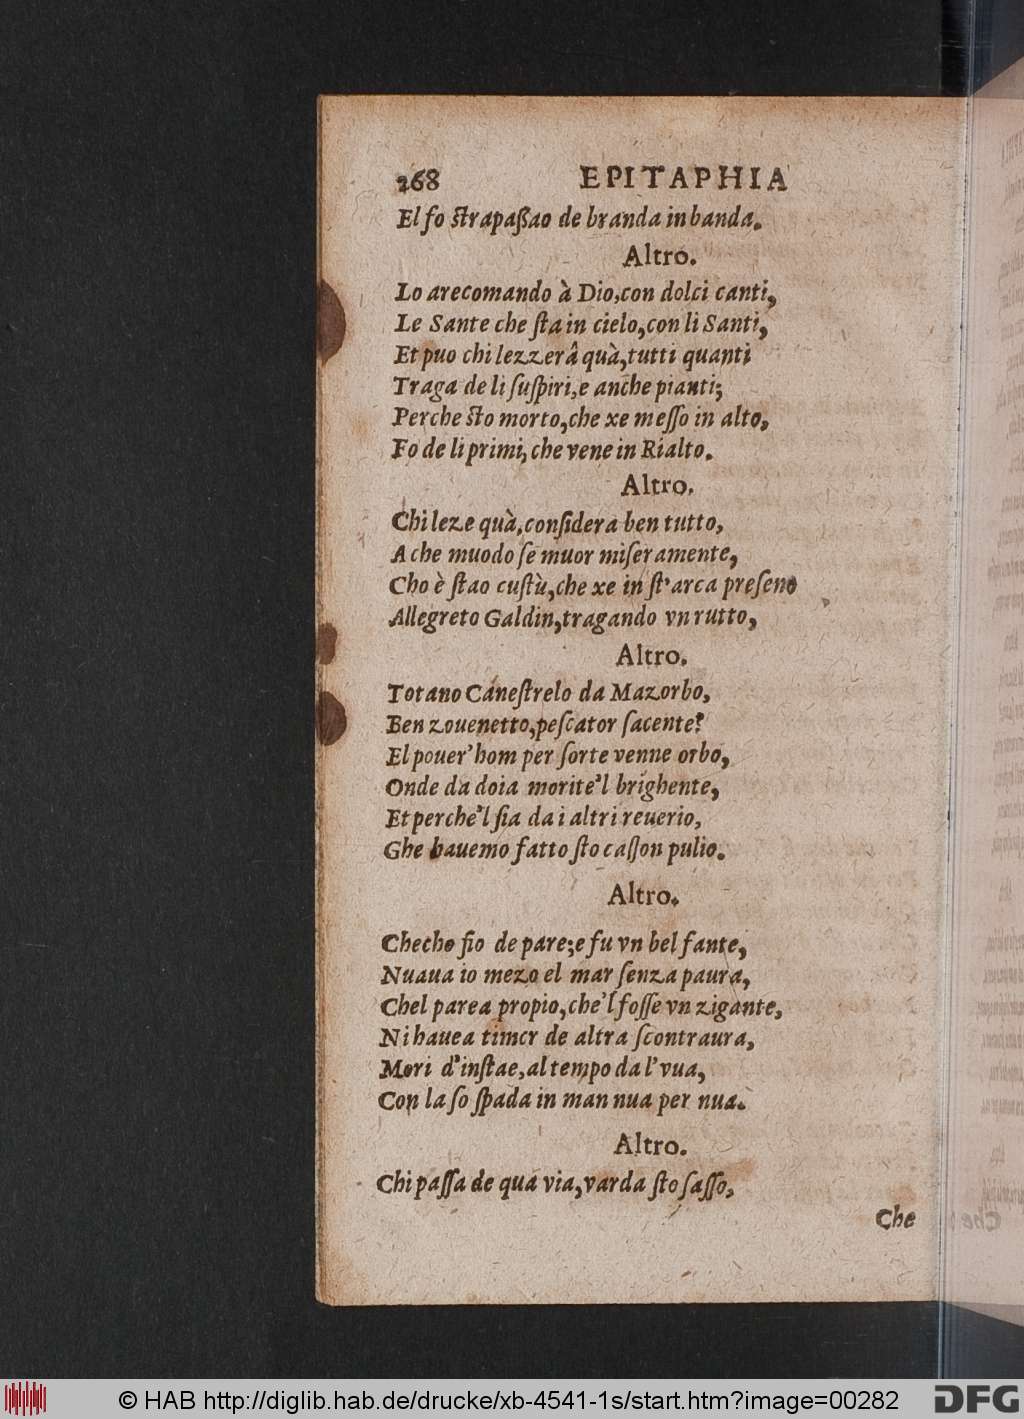 268 EPITAPHIA
El fo ſtrapaßao de branda in banda.
Altro.
Lo arecomando à Dio, con dolci canti,
Le Sante che ſta in cielo, con li Santi,
Et puo chi lezzerâ quà, tutti quanti
Traga de li ſuſpiri, e anche pianti;
Perche ſto morto, che xe meſſo in alto,
Fo de li primi, che vene in Rialto.
Altro.
Chi leze quà, conſidera ben tutto,
A che muodo ſe muor miſeramente,
Cho è ſtao cuſtù, che xe in ſt'arca preſeno
Allegreto Galdin, tragando vn rutto,
Altro.
Totano Caneſtrelo da Mazorbo,
Ben zouenetto, peſcator ſacente?
El pouer'hom per ſorte venne orbo,
Onde da doia morite'l brighente,
Et perche'l ſia da i altri reuerio,
Ghe hauemo fatto ſto caſſon pulio.
Altro.
Checho fio de pare; e fu vn bel fante,
Nuaua io mezo el mar ſenza paura,
Chel parea propio, che'l foſſe vn zigante,
Ni hauea timer de altra ſcontraura,
Mori d'inſtae, al tempo da l'vua,
Con la ſo ſpada in man nua per nua.
Altro.
Chi paſſa de quà via, varda ſto ſaſſo,
Che
© HAB http://diglib.hab.de/drucke/xb-4541-1s/start.htm?image=00282 DFG